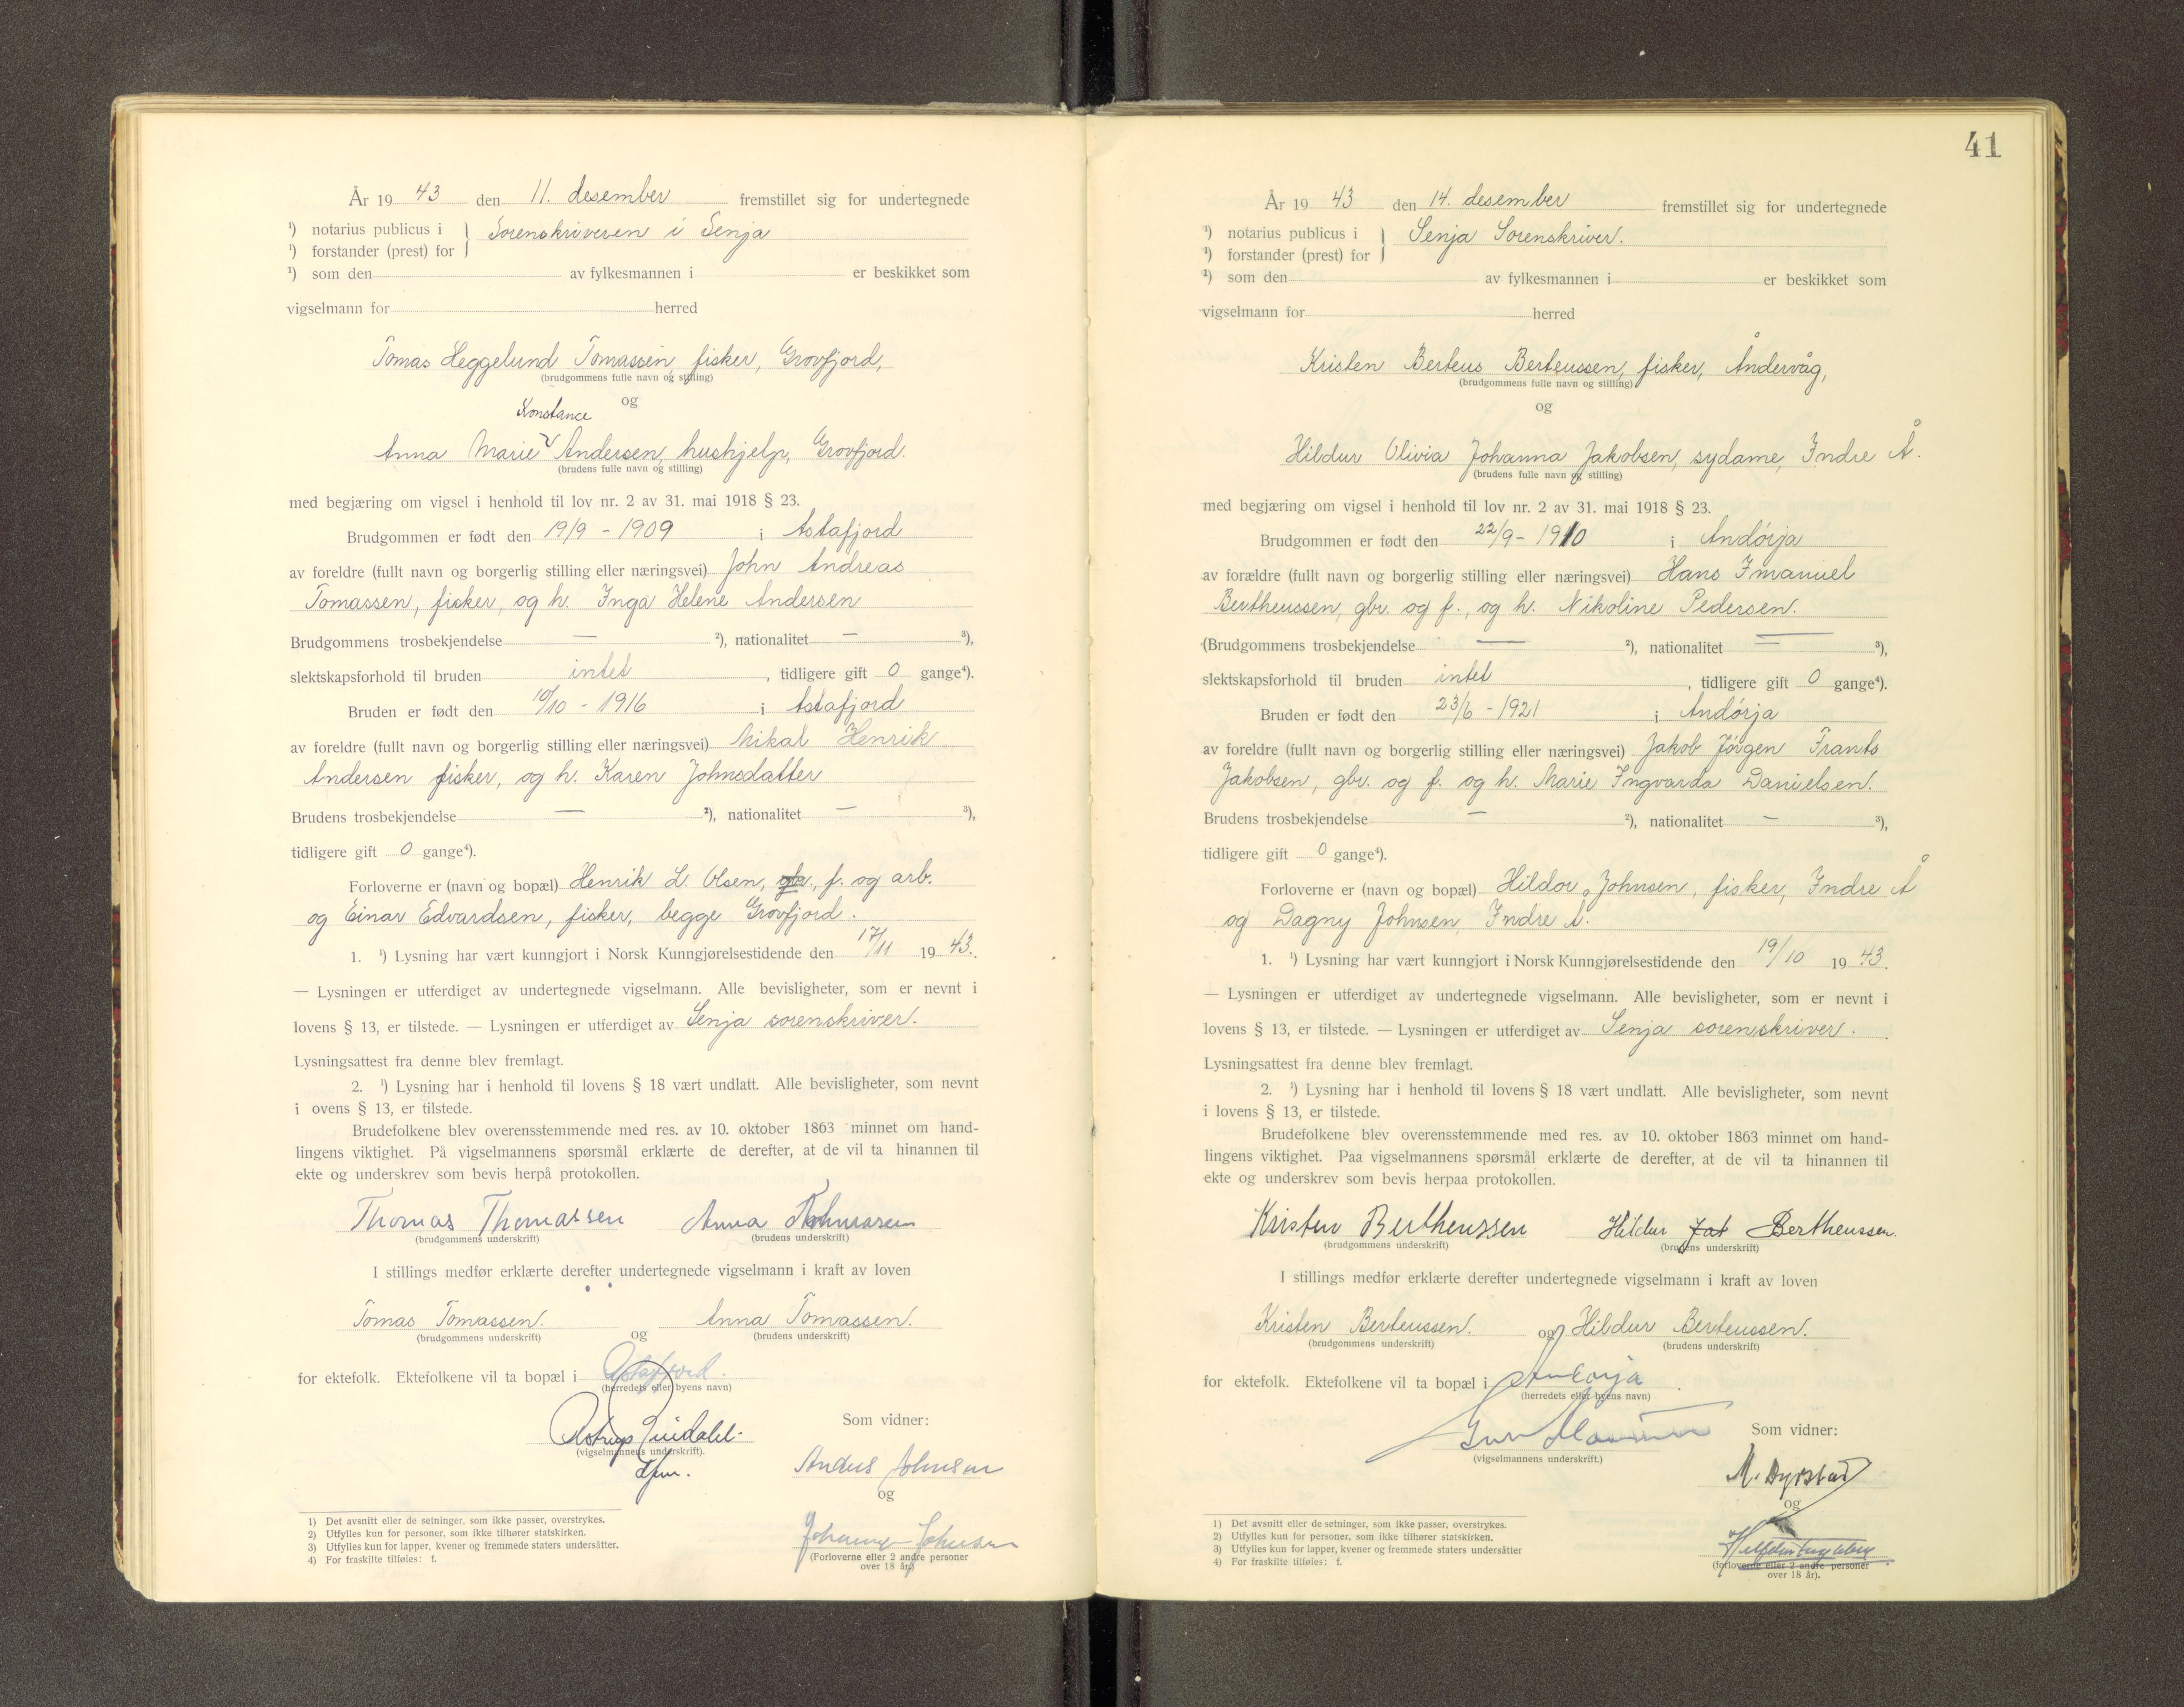 År 19 43 den 11. desember fremstillet sig for undertegnede
¹) notarius publicus i } Sorenskriveren i Senja
¹) forstander (prest) for
¹) som den av fylkesmannen i er beskikket som
vigselmann for herred
Tomas Heggelund Tomassen, fisker, Grovfjord,
(brudgommens fulle navn og stilling)
og
Konstance
Anna Marie Andersen, hushjelp, Grovfjord.
(brudens fulle navn og stilling)
med begjæring om vigsel i henhold til lov nr. 2 av 31. mai 1918 § 23.
Brudgommen er født den 19/9 - 1909 i Astafjord
av foreldre (fullt navn og borgerlig stilling eller næringsvei) John Andreas
Tomassen, fisker, og h. Inga Helene Andersen
Brudgommens trosbekjendelse — ²), nationalitet — ³),
slektskapsforhold til bruden intet, tidligere gift 0 gange⁴).
Bruden er født den 10/10 - 1916 i Astafjord
av foreldre (fullt navn og borgerlig stilling eller næringsvei) Mikal Henrik
Andersen fisker, og h. Karen Johnsdatter
Brudens trosbekjendelse — ²), nationalitet — ³),
tidligere gift 0 gange⁴).
Forloverne er (navn og bopæl) Henrik L. Olsen, gbr., f. og arb.
og Einar Edvardsen, fisker, begge Grovfjord.
1. ¹) Lysning har vært kunngjort i Norsk Kunngjørelsestidende den 17/11 19 43.
— Lysningen er utferdiget av undertegnede vigselmann. Alle bevisligheter, som er nevnt i
lovens § 13, er tilstede. — Lysningen er utferdiget av Senja sorenskriver.
Lysningsattest fra denne blev fremlagt.
2. ¹) Lysning har i henhold til lovens § 18 vært undlatt. Alle bevisligheter, som nevnt
i ovens § 13, er tilstede.
Brudefolkene blev overensstemmende med res. av 10. oktober 1863 minnet om hand-
lingens viktighet. På vigselmannens spørsmål erklærte de derefter, at de vil ta hinannen til
ekte og underskrev som bevis herpå protokollen.
Thomas Thomassen Anna Thomassen
(brudgommens underskrift) (brudens underskrift)
I stillings medfør erklærte derefter undertegnede vigselmann i kraft av loven
Tomas Tomassen. og Anna Tomassen.
(brudgommens underskrift) (brudens underskrift)
for ektefolk. Ektefolkene vil ta bopæl i Astafjord.
(herredets eller byens navn)
Som vidner:
(vigselmannens underskrift).
Johnsen
og
Johnsen
(Forloverne eller 2 andre personer
over 18 år)
1) Det avsnitt eller de setninger, som ikke passer, overstrykes.
2) Utfylles kun for personer, som ikke tilhører statskirken.
3) Utfylles kun for lapper, kvener og fremmede staters undersåtter.
4) For fraskilte tilføies: f.
41
År 19 43 den 14. desember fremstillet sig for undertegnede
¹) notarius publicus i } Senja Sorenskriver.
¹) forstander (prest) for
¹) som den av fylkesmannen i er beskikket som
vigselmann for herred
Kristen Berteus Berteussen, fisker, Åndervåg,
(brudgommens fulle navn og stilling)
og
Hildur Olivia Johanna Jakobsen, sydame, Indre Å.
(brudens fulle navn og stilling)
med begjæring om vigsel i henhold til lov nr. 2 av 31. mai 1918 § 23.
Brudgommen er født den 22/9 - 1910 i Andörja
av forældre (fullt navn og borgerlig stilling eller næringsvei) Hans Imanuel
Bertheussen, gbr. og f., og h. Nikoline Pedersen.
(Brudgommens trosbekjendelse — ²), nationalitet — ³),
slektskapsforhold til bruden intet, tidligere gift 0 gange⁴).
Bruden er født den 23/6 - 1921 i Andörja
av foreldre (fullt navn og borgerlig stilling eller næringsvei) Jakob Jörgen Frants
Jakobsen, gbr. og f. og h. Marie Ingvarda Danielsen.
Brudens trosbekjendelse — ²), nationalitet — ³),
tidligere gift 0 gange⁴).
Forloverne er (navn og bopæl) Hildor Johnsen, fisker, Indre Å
og Dagny Johnsen, Indre Å.
1. ¹) Lysning har vært kunngjort i Norsk Kunngjørelsestidende den 19/10 19 43.
— Lysningen er utferdiget av undertegnede vigselmann. Alle bevisligheter, som er nevnt i
lovens § 13, er tilstede. — Lysningen er utferdiget av Senja sorenskriver.
Lysningsattest fra denne blev fremlagt.
2. ¹) Lysning har i henhold til lovens § 18 vært undlatt. Alle bevisligheter, som nevnt
i lovens § 13, er tilstede.
Brudefolkene blev overensstemmende med res. av 10. oktober 1863 minnet om hand-
lingens viktighet. Paa vigselmannens spørsmål erklærte de derefter, at de vil ta hinannen til
ekte og underskrev som bevis herpaa protokollen.
Kristen Bertheussen Hildur Jak Bertheussen.
(brudgommens underskrift) (brudens underskrift)
I stillings medfør erklærte derefter undertegnede vigselmann i kraft av loven
Kristen Berteussen. og Hildur Berteussen.
(brudgommens underskrift) (brudens underskrift)
for ektefolk. Ektefolkene vil ta bopæl i Andörja.
(herredets eller byens navn)
Som vidner:
(vigselmannens underskrift.)
M. Dyrstad
og
(forloverne eller 2 andre personer
over 18 år).
1) Det avsnitt eller de setninger, som ikke passer, overstrykes.
2) Utfylles kun for personer, som ikke tilhører statskirken.
3) Utfylles kun for lapper, kvener og fremmede staters undersåtter
4) For fraskilte tilføies: f.